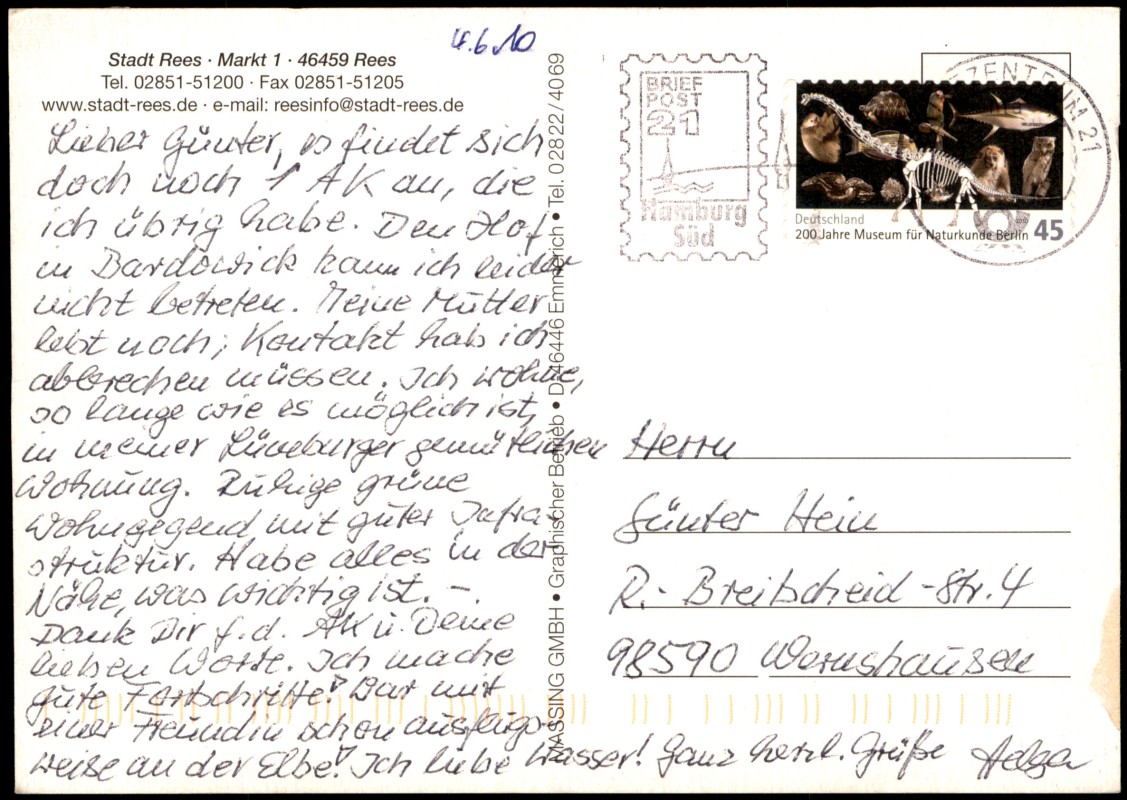 4.6.10
Stadt Rees · Markt 1 · 46459 Rees
Tel. 02851-51200 · Fax 02851-51205
www.stadt-rees.de · e-mail: reesinfo@stadt-rees.de
Lieber Günter, es findet sich
doch noch 1 AK an, die
ich übrig habe. Den Hof
in Bardowick kann ich leider
nicht betreten. Meine Mutter
lebt noch; Kontakt hab ich
abbrechen müssen. Ich wohne,
so lange wie es möglich ist,
in meiner Lüneburger gemütlichen
Wohnung. Ruhige grüne
Wohngegend mit guter Infra-
struktur. Habe alles in der
Nähe, was wichtig ist. –.
Dank Dir f. d. AK u. Deine
lieben Worte. Ich mache
gute Fortschritte! War mit
einer Freundin schon ausflugs-
weise an der Elbe! Ich liebe Wasser! Ganz herzl. Grüße Helga
MASSING GMBH • Graphischer Betrieb • D-46446 Emmerich • Tel. 02822/40069
BRIEF
POST
21
Hamburg
Süd
BRIEFZENTRUM 21
Deutschland
200 Jahre Museum für Naturkunde Berlin 45
Herrn
Günter Hein
R.-Breitscheid-Str. 4
98590 Wernshausen